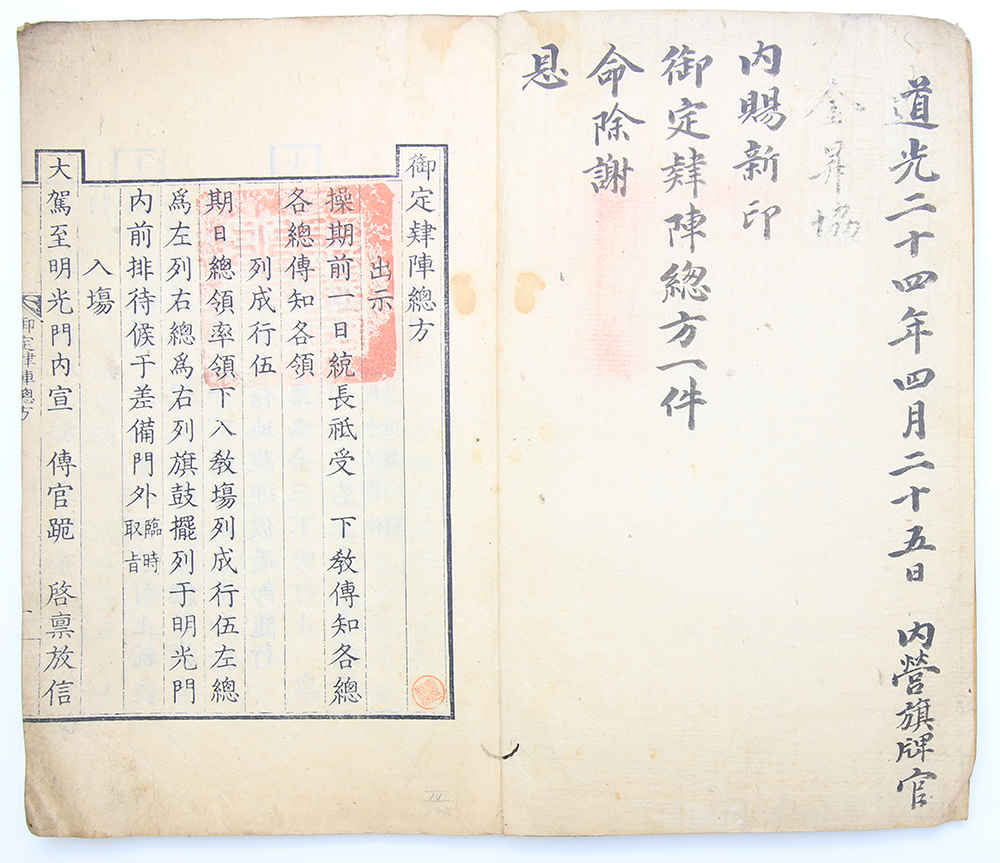 道光二十四年四月二十五日 內營旗牌官
金昇協
內賜新印
御定肄陣總方一件
命除謝
恩
御定肄陣總方
出示
操期前一日統長祗受 下敎傳知各總
各總傳知各領
列成行伍
期日總領率領下入敎塲列成行伍左總
爲左列右總爲右列旗鼓擺列于明光門
內前排待候于差備門外臨時取旨
入塲
大駕至明光門內宣 傳官跪 啓禀放信
御定肄陣總方